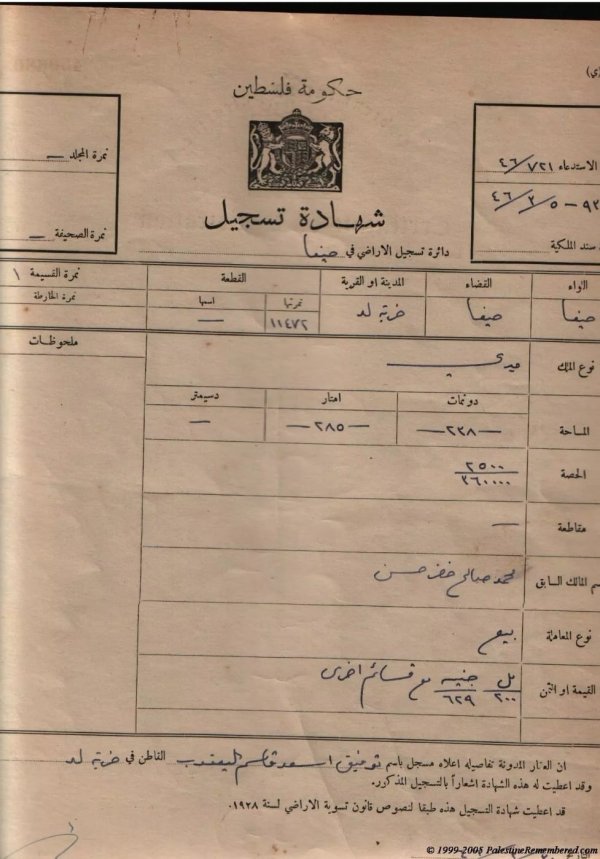 حكومة فلسطين
شهادة تسجيل
دائرة تسجيل الاراضي في حيفا
الاستدعاء ٤٦/٧٢١
سند الملكية
نمرة المجلد —
نمرة الصحيفة —
اللواء القضاء المدينة او القرية القطعة نمرة القسيمة ١
نمرتها اسمها نمرة الخارطة
حيفا حيفا خربة لد ١١٤٧٢ —
ملحوظات
نوع الملك ميري
دونمات امتار دسيمتر
المساحة —٢٣٨— —٢٨٥— —
الحصة ٢٥٠٠
٣٦٠٠٠٠
مقاطعة —
اسم المالك السابق محمد صالح خضر حسن
نوع المعاملة بيع
القيمة او الثمن مل جنيه مع قسائم اخرى
٢٠٠ ٦٢٩
ان العقار المدونة تفاصيله اعلاه مسجل باسم توفيق اسعد قاسم اليعقوب القاطن في خربة لد
وقد اعطيت له هذه الشهادة اشعاراً بالتسجيل المذكور.
قد اعطيت شهادة التسجيل هذه طبقا لنصوص قانون تسوية الاراضي لسنة ١٩٢٨.
© 1999-2005 PalestineRemembered.com